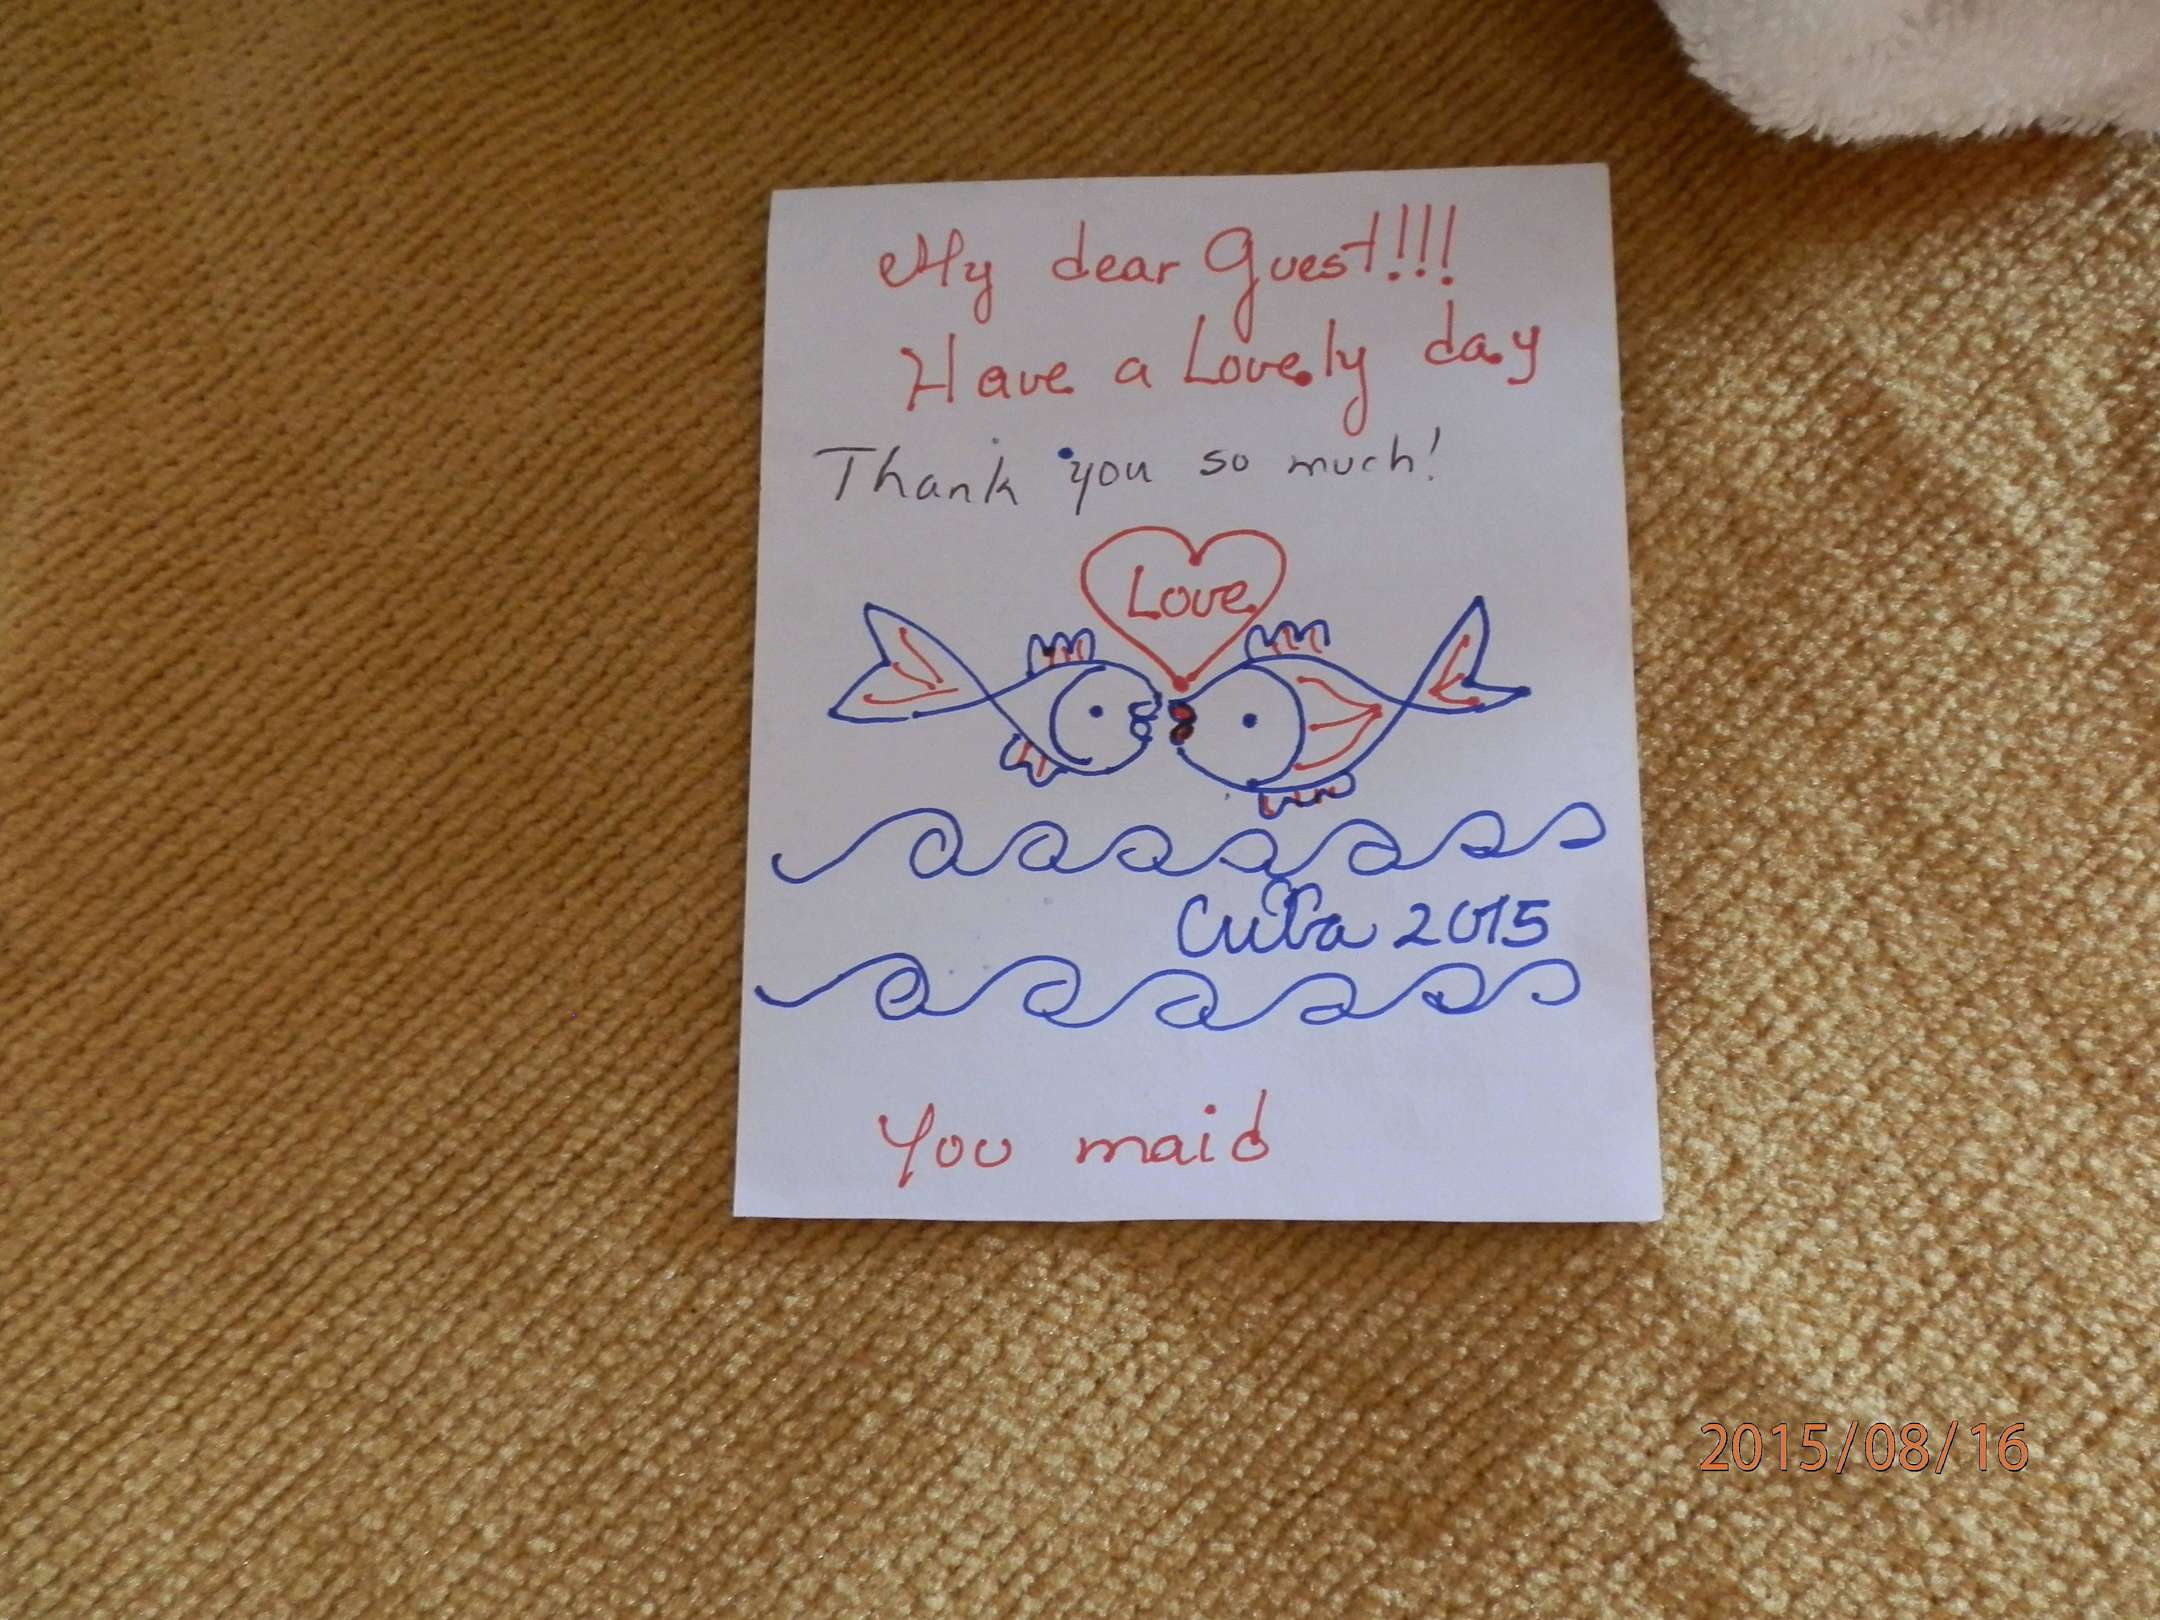 My dear Guest!!!
Have a Lovely day
Thank you so much!
Love
Cuba 2015
You maid
2015/08/16